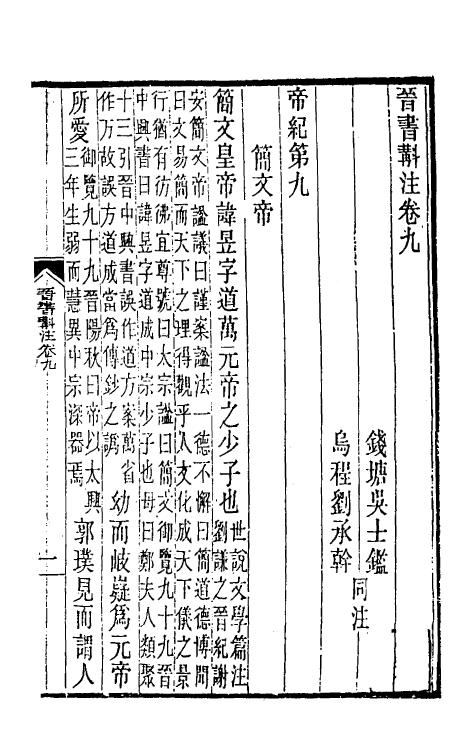 晉書斠注卷九
錢塘吳士鑑
烏程劉承幹
同注
帝紀第九
簡文帝
簡文皇帝諱昱字道萬元帝之少子也
世說文學篇注
劉謙之晉紀謝
安簡文帝謚議曰謹案謚法一德不懈曰簡道德博聞
曰文易簡而天下之理得觀乎人文化成天下儀之景
行猶有彷彿宜尊號曰太宗謚曰簡文御覽九十九晉
中興書曰諱昱字道成中宗少子也母曰鄭夫人類聚
十三引晉中興書誤作道方案萬省
作万故誤方道成當爲傳鈔之譌
幼而岐嶷爲元帝
所愛
御覽九十九晉陽秋曰帝以太興
三年生弱而慧異中宗深器焉
郭璞見而謂人
晉書斠注卷九
一